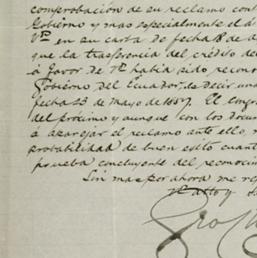 comprobación de su reclamo con
Gobierno y mas especialmente el d
V. en su carta de fecha 18 de a
que la trasferencia del crédito de
á favor de V. habia sido recon
Gobierno del Ecuador, de decir una
fecha 23 de Mayo de 1857. El cong
del proximo y aunque con los docu
á aparejar el reclamo ante ello,
probabilidad de buen exito cuant
prueba concluyente del reconoci
Sin mas por ahora me re
atto y